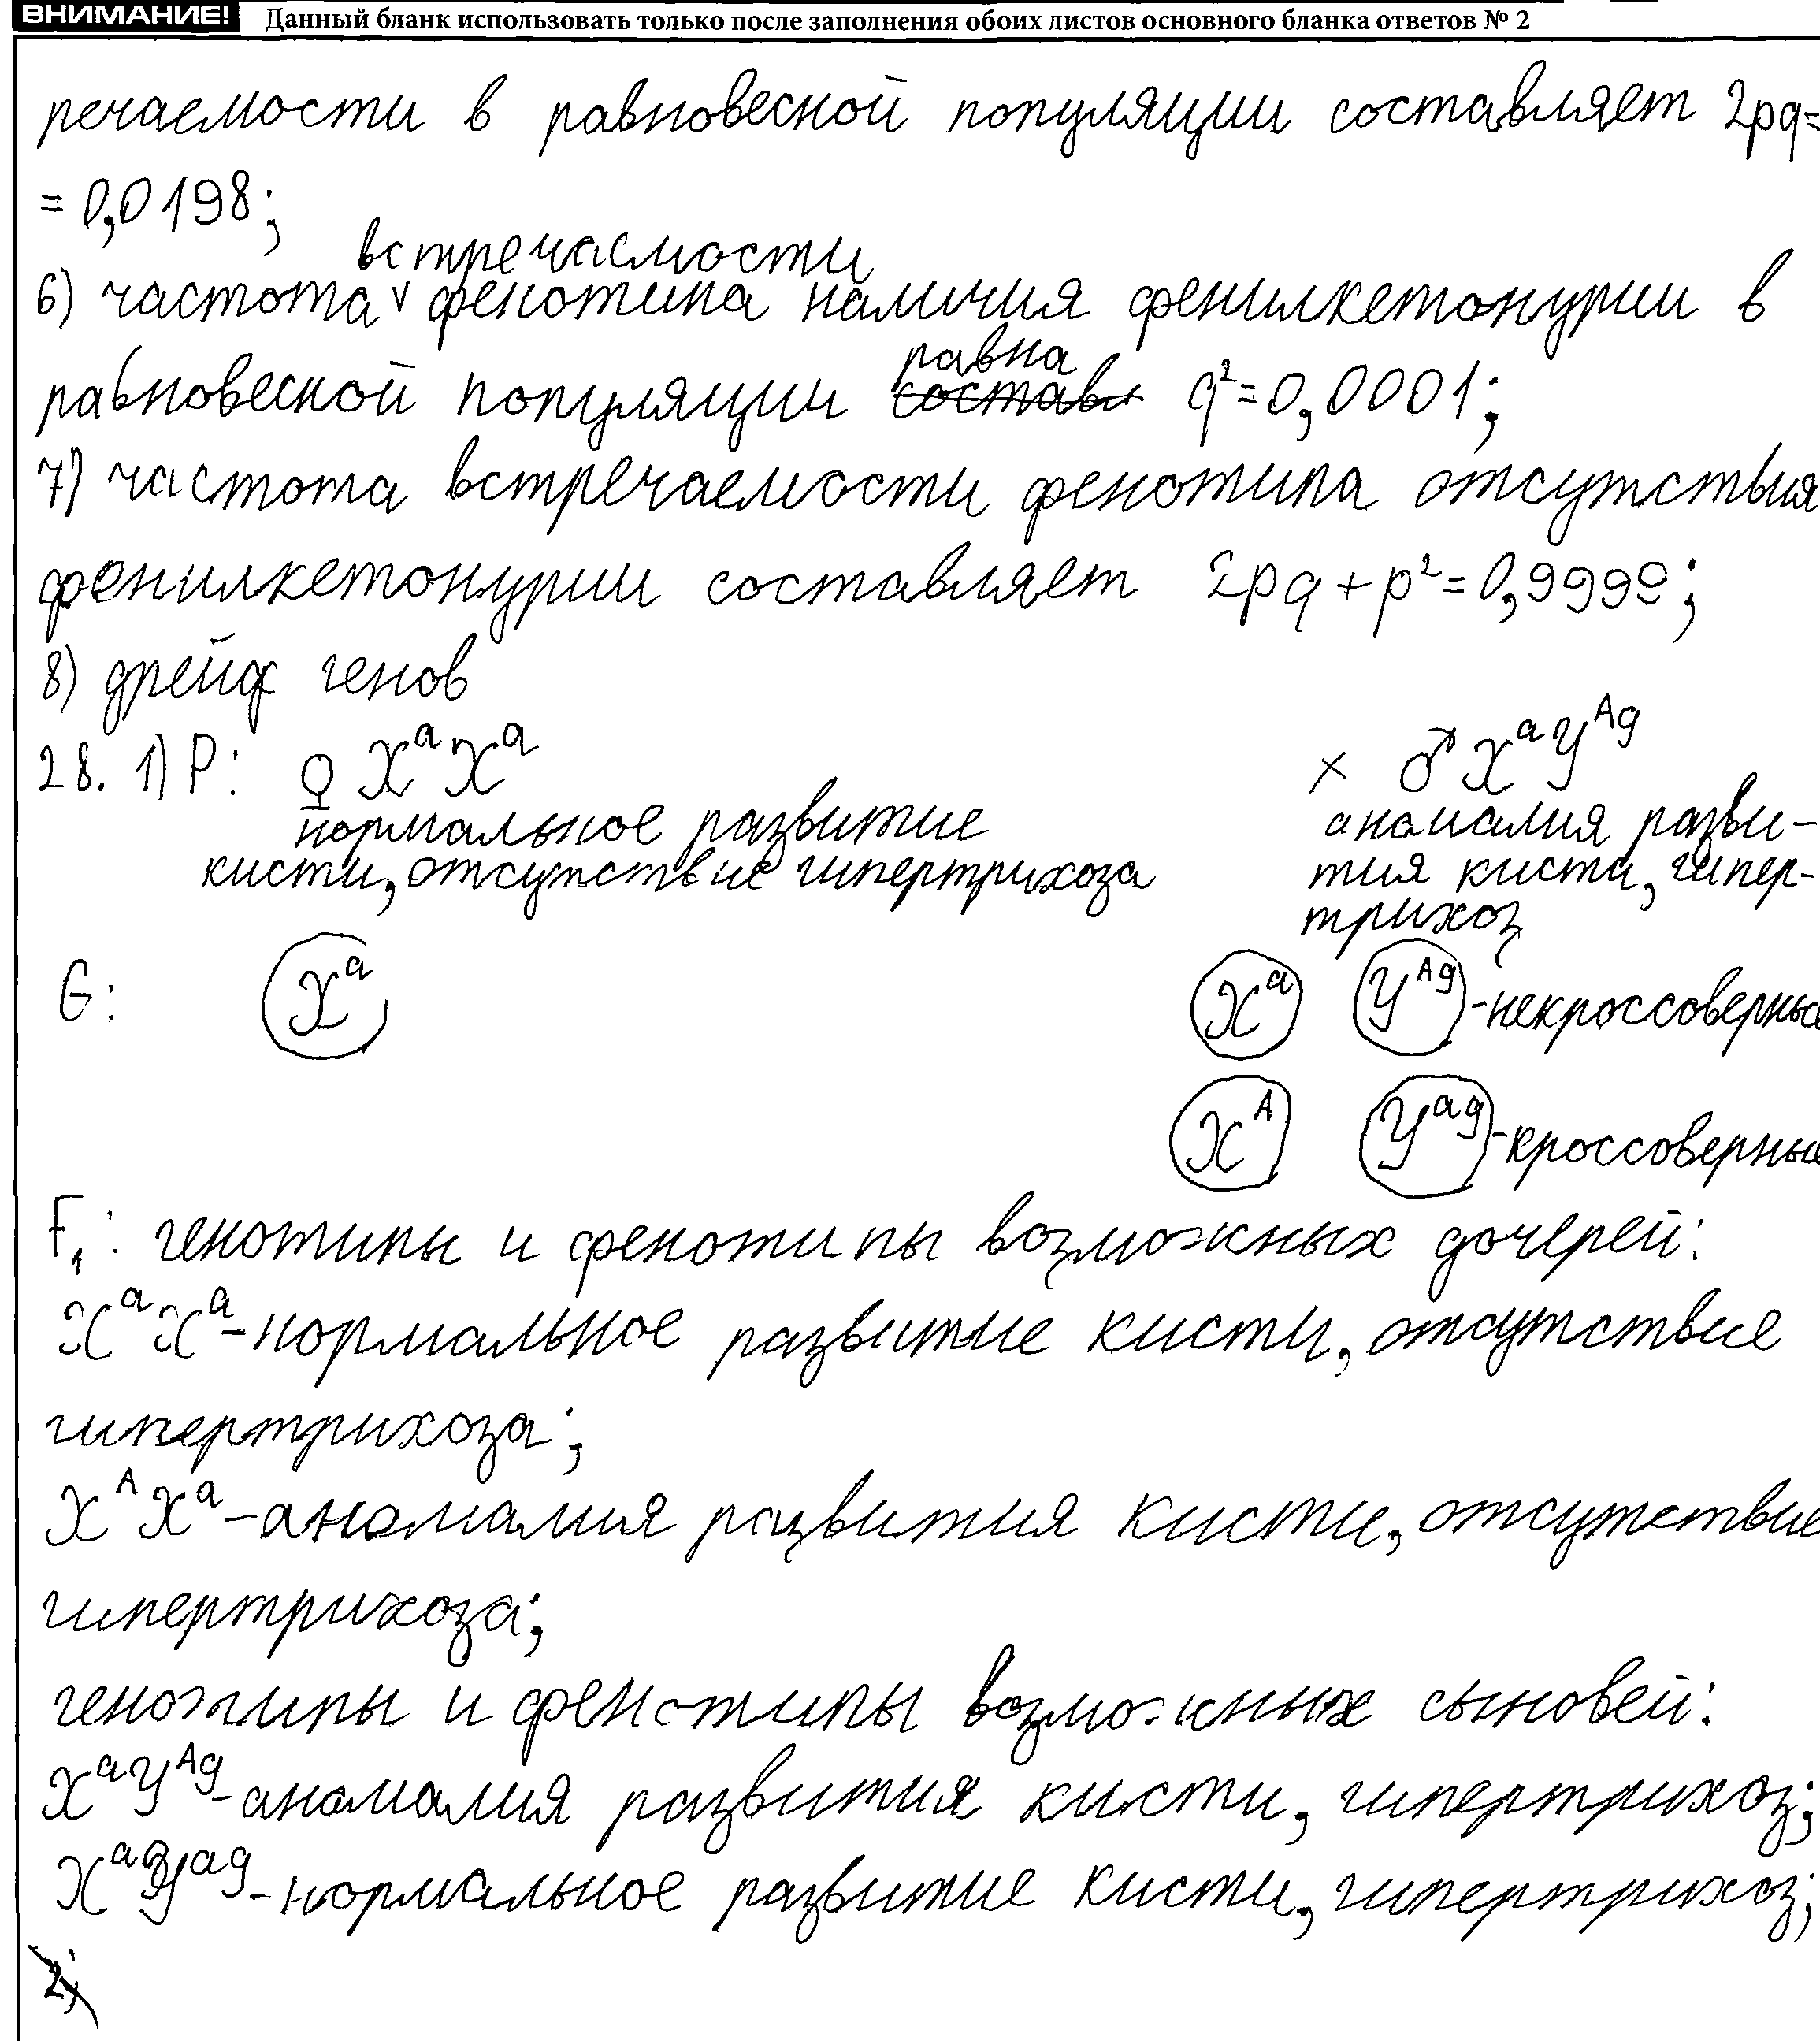 ВНИМАНИЕ! Данный бланк использовать только после заполнения обоих листов основного бланка ответов № 2
речаемости в равновесной популяции составляет 2pq=
= 0,0198;
встречаемости
6) частота v фенотипа наличия фенилкетонурии в
равна
равновесной популяции составл q²=0,0001;
7) частота встречаемости фенотипа отсутствия
фенилкетонурии составляет 2pq + p² = 0,9999;
8) дрейф генов
28. 1) P: ♀ XᵃXᵃ × ♂ XᵃYᴬᵍ
нормальное развитие аномалия разви-
кисти, отсутствие гипертрихоза тия кисти, гипер-
трихоз
G: Xᵃ Xᵃ Yᴬᵍ -некроссоверные
Xᴬ Yᵃᵍ -кроссоверные
F₁: генотипы и фенотипы возможных дочерей:
XᵃXᵃ -нормальное развитие кисти, отсутствие
гипертрихоза;
XᴬXᵃ -аномалия развития кисти, отсутствие
гипертрихоза;
генотипы и фенотипы возможных сыновей:
XᵃYᴬᵍ -аномалия развития кисти, гипертрихоз;
XᵃYᵃᵍ -нормальное развитие кисти, гипертрихоз;
2)